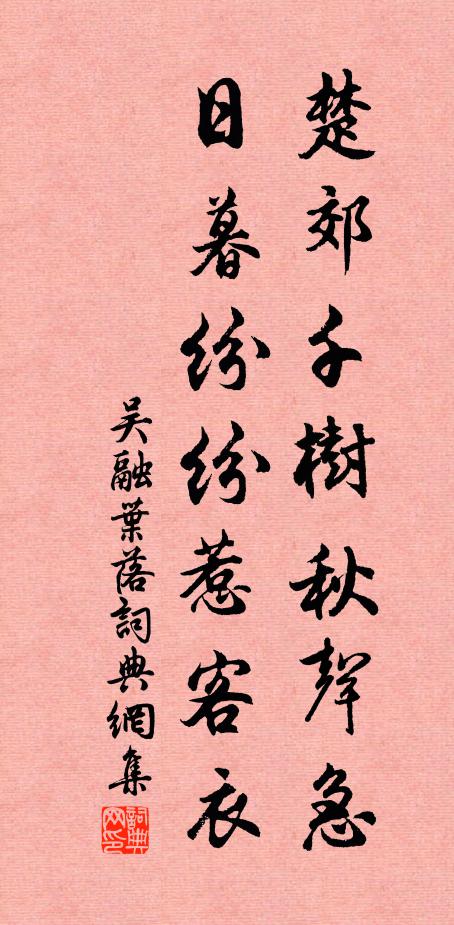 楚郊千樹秋聲急
日暮紛紛惹客衣
吳融葉落詞典網集
詞典网印